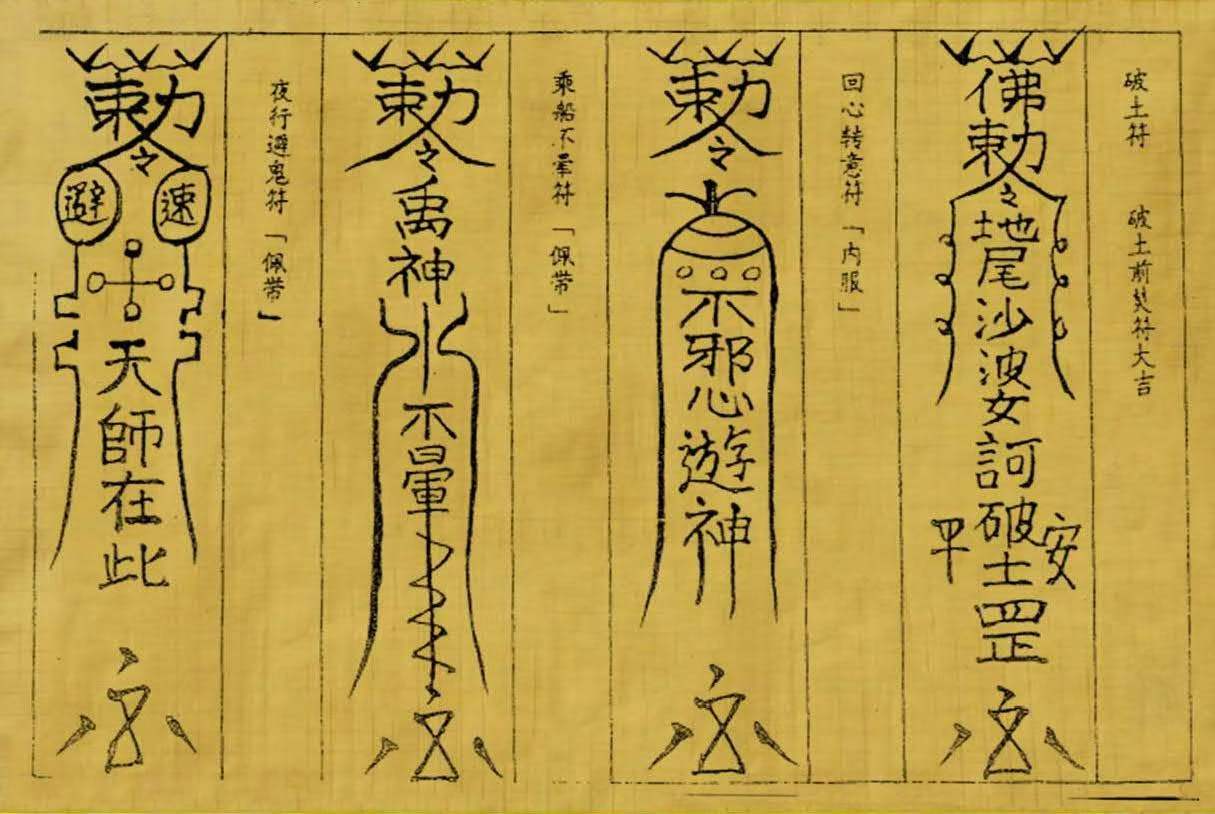 破土符 破土前焚符大吉
佛勅令
地尾沙波女訶破土罡
安
平
回心转意符「内服」
勅令
不邪心遊神
乘船不晕符「佩带」
勅令
禹神水不暈
夜行避鬼符「佩带」
勅令
速
避
天師在此